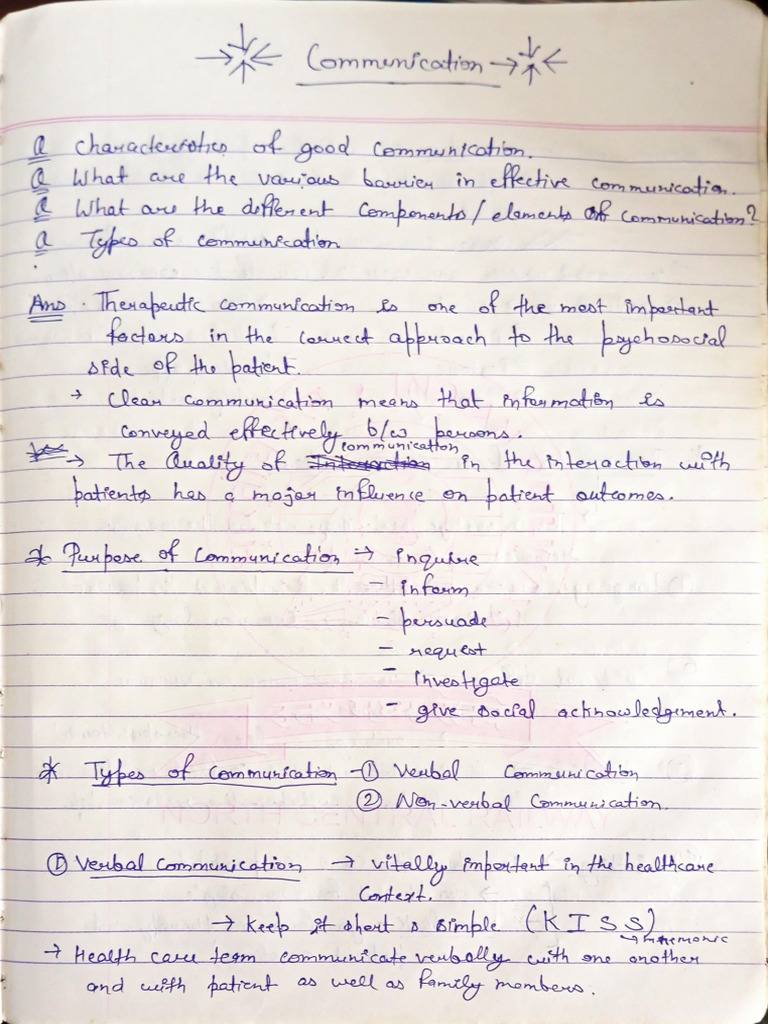 Communication
Q Characteristics of good communication.
Q What are the various barrier in effective communication.
Q What are the different Components/elements of communication?
Q Types of communication
Ans . Therapeutic communication is one of the most important
factors in the correct approach to the psychosocial
side of the patient.
→ Clear communication means that information is
conveyed effectively b/w persons.
communication
→ The Quality of Interaction in the interaction with
patients has a major influence on patient outcomes.
* Purpose of Communication → inquire
- inform
- persuade
- request
- investigate
- give social acknowledgement.
* Types of communication - ① Verbal Communication
② Non-verbal Communication.
① Verbal Communication → vitally important in the healthcare
Context.
→ Keep it short & simple (KISS)
→ mnemonic
→ Health care team communicate verbally with one another
and with patient as well as family members.